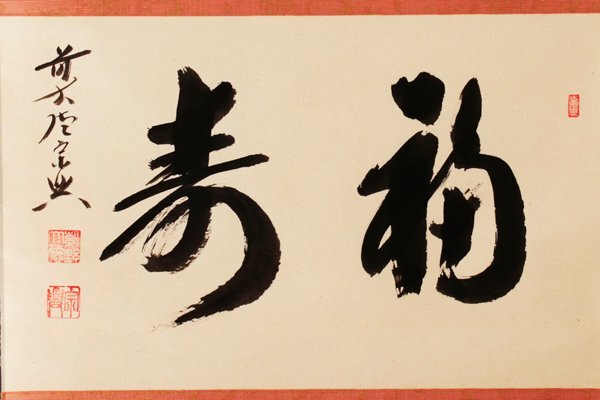 福寿
前大徳宗